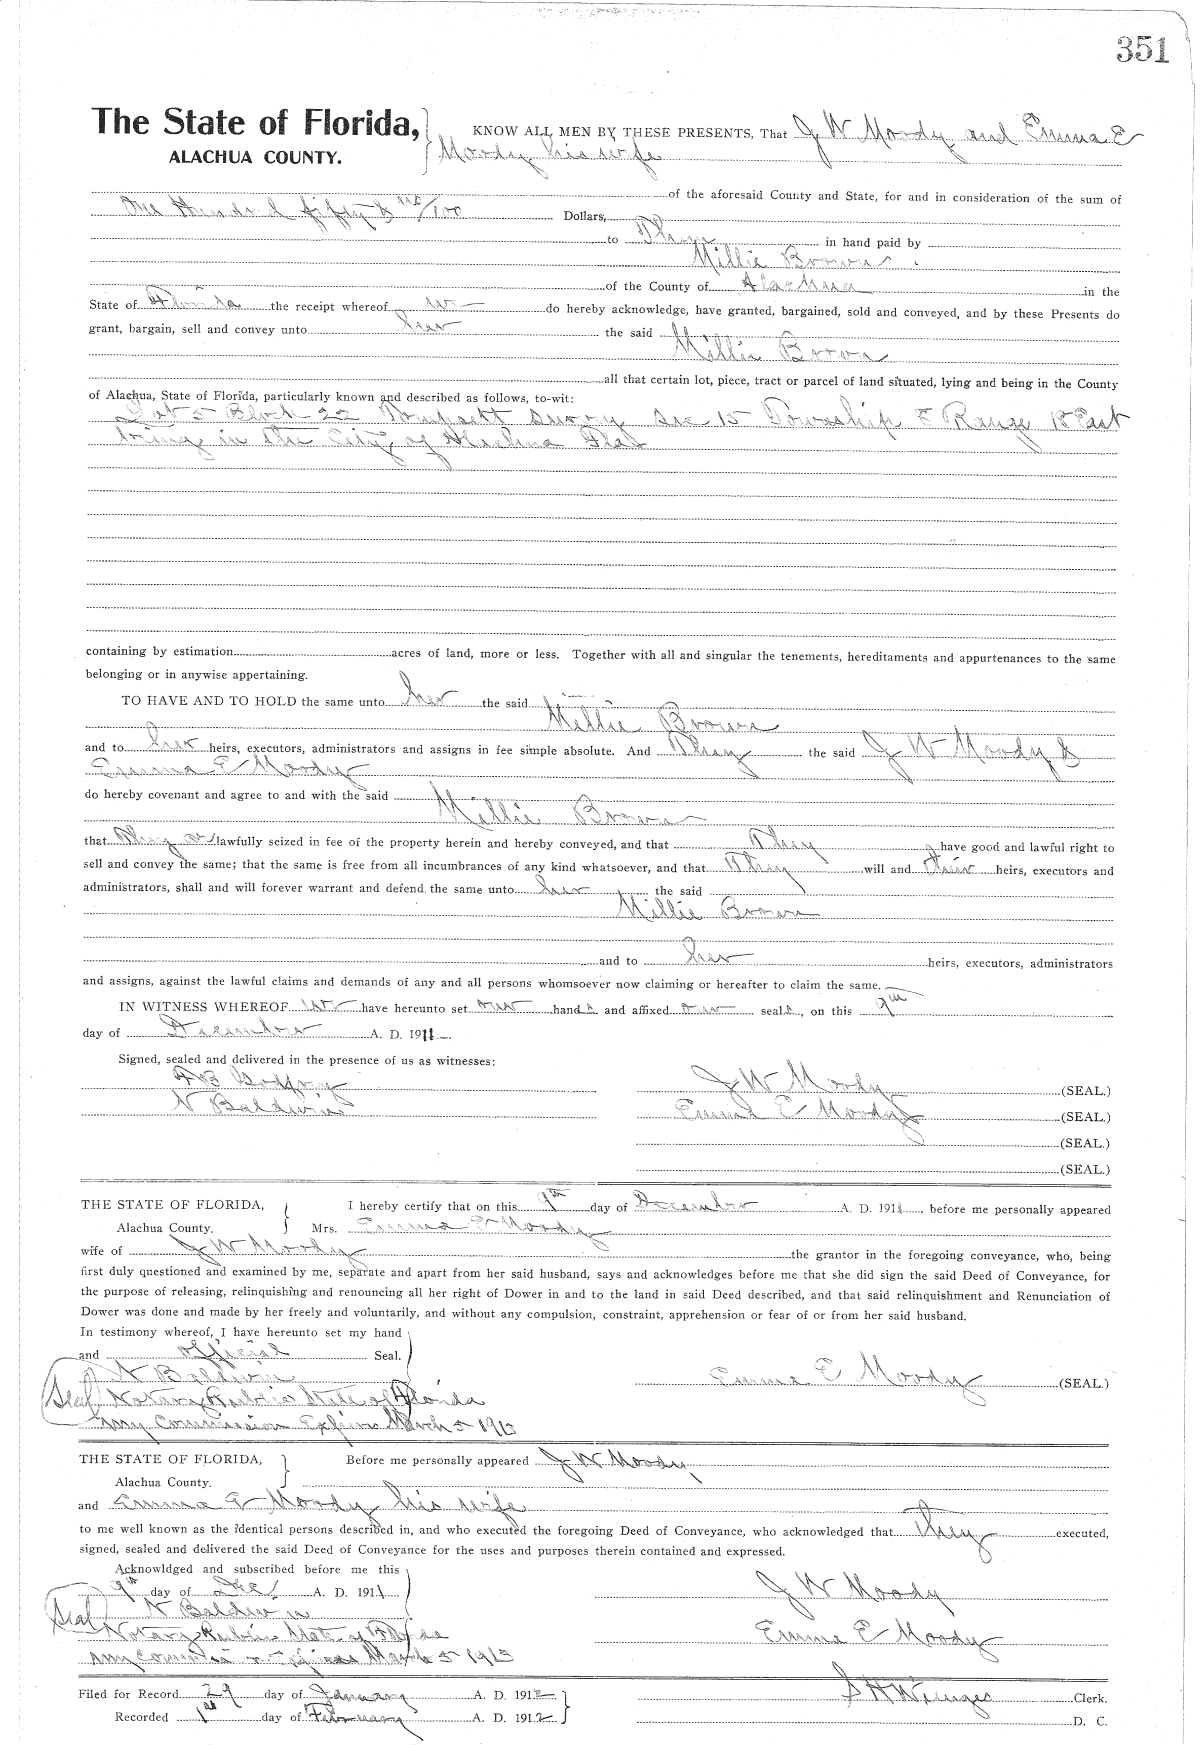 351
The State of Florida, KNOW ALL MEN BY THESE PRESENTS, That J W Moody and Emma E
ALACHUA COUNTY. Moody his wife
of the aforesaid County and State, for and in consideration of the sum of
One Hundred fifty & no/100 Dollars,
to Them in hand paid by
Millie Brown
of the County of Alachua in the
State of Florida the receipt whereof we do hereby acknowledge, have granted, bargained, sold and conveyed, and by these Presents do
grant, bargain, sell and convey unto her the said
Millie Brown
all that certain lot, piece, tract or parcel of land situated, lying and being in the County
of Alachua, State of Florida, particularly known and described as follows, to-wit:
Lot 5 Block 22 Tompsett Survey Sec 15 Township 8 Range 18 East
lying in the City of Alachua Fla
containing by estimation acres of land, more or less. Together with all and singular the tenements, hereditaments and appurtenances to the same
belonging or in anywise appertaining.
TO HAVE AND TO HOLD the same unto her the said
Millie Brown
and to her heirs, executors, administrators and assigns in fee simple absolute. And They the said J W Moody &
Emma E Moody
do hereby covenant and agree to and with the said
Millie Brown
that They are lawfully seized in fee of the property herein and hereby conveyed, and that They have good and lawful right to
sell and convey the same; that the same is free from all incumbrances of any kind whatsoever, and that They will and their heirs, executors and
administrators, shall and will forever warrant and defend the same unto her the said
Millie Brown
and to her heirs, executors, administrators
and assigns, against the lawful claims and demands of any and all persons whomsoever now claiming or hereafter to claim the same.
IN WITNESS WHEREOF we have hereunto set our hands and affixed our seals, on this 9th
day of December A. D. 1911
Signed, sealed and delivered in the presence of us as witnesses:
A B Godfrey J W Moody (SEAL.)
N Baldwin Emma E Moody (SEAL.)
(SEAL.)
(SEAL.)
THE STATE OF FLORIDA, I hereby certify that on this 9th day of December A. D. 1911, before me personally appeared
Alachua County. Mrs. Emma E Moody
wife of J W Moody the grantor in the foregoing conveyance, who, being
first duly questioned and examined by me, separate and apart from her said husband, says and acknowledges before me that she did sign the said Deed of Conveyance, for
the purpose of releasing, relinquishing and renouncing all her right of Dower in and to the land in said Deed described, and that said relinquishment and Renunciation of
Dower was done and made by her freely and voluntarily, and without any compulsion, constraint, apprehension or fear of or from her said husband.
In testimony whereof, I have hereunto set my hand
and official Seal.
N Baldwin Emma E Moody (SEAL.)
Seal Notary Public State of Florida
My Commission Expires March 5 1913
THE STATE OF FLORIDA, Before me personally appeared J W Moody
Alachua County.
and Emma E Moody his wife
to me well known as the identical persons described in, and who executed the foregoing Deed of Conveyance, who acknowledged that they executed,
signed, sealed and delivered the said Deed of Conveyance for the uses and purposes therein contained and expressed.
Acknowldged and subscribed before me this
9th day of Dec A. D. 1911 J W Moody
Seal N Baldwin
Notary Public State of Florida Emma E Moody
My Commission Expires March 5 1913
Filed for Record 29 day of January A. D. 1912 S H Wienges Clerk.
Recorded 1st day of February A. D. 1912 D. C.